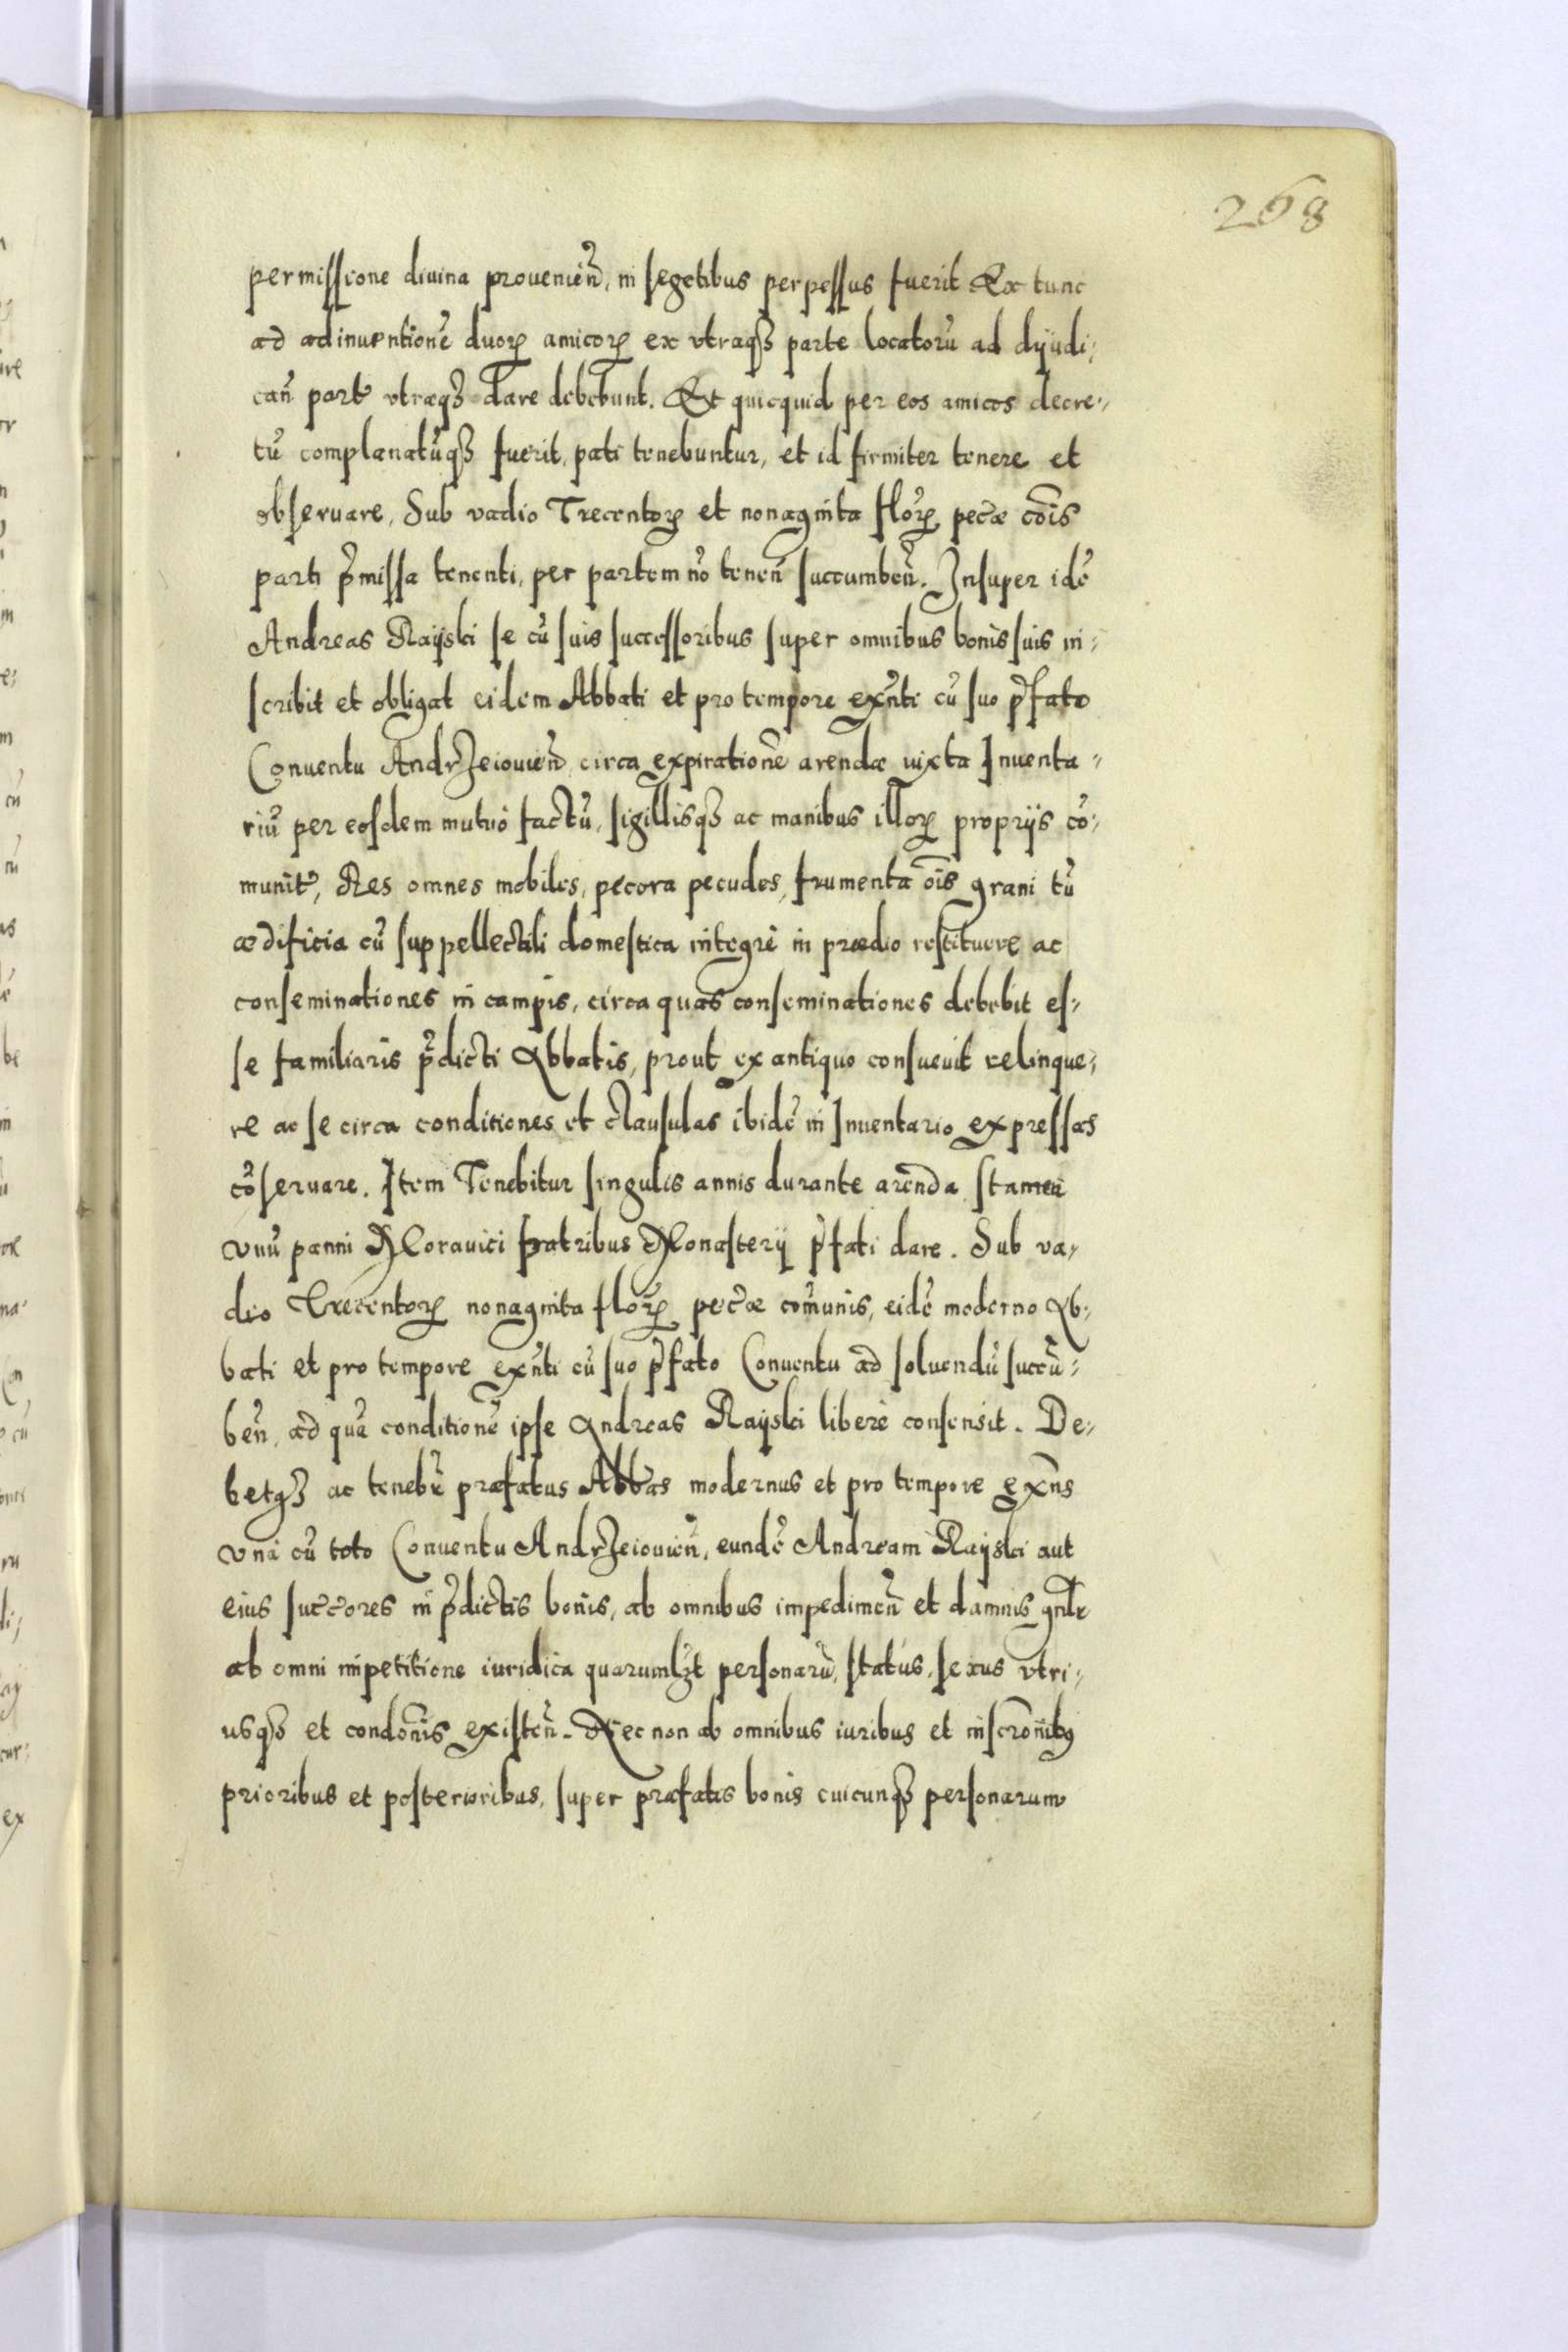 268
permissione diuina prouenien̄, in segetibus perpessus fuerit Ex tunc
ad adinuentionē duoꝝ amicoꝝ ex vtraqꝫ parte locatorū ad dyiudi-
can̄ part vtraqꝫ dare debebunt. Et quicquid per eos amicos decre-
tū complanatūqꝫ fuerit, pati tenebuntur, et id firmiter tenere et
obseruare, Sub vadio Trecentoꝝ et nonaginta floꝝ pec̄æ cōis
parti p̄missa tenenti, per partem nō tenen̄ succumben̄. Insuper idē
Andreas Rayski se cū suis successoribus super omnibus bonis suis in-
scribit et obligat eidem Abbati et pro tempore exn̄ti cū suo p̄fato
Conuentu Andrzeiouien̄, circa expirationē arendæ iuxta Inuenta-
riū per eosdem mutuò factū, sigillisqꝫ ac manibus illoꝝ proprijs cō-
munit, Res omnes mobiles, pecora pecudes, frumenta oīs grani tū
ædificia cū suppellectili domestica integrè in prædio restituere ac
conseminationes in campis, circa quas conseminationes debebit es-
se familiaris p̄dicti Abbatis, prout ex antiquo consueuit relinque-
re ac se circa conditiones et clausulas ibidē in Inuentario expressas
cōseruare. Item Tenebitur singulis annis durante arenda stamen
vnū panni Morauici fratribus Monasterij p̄fati dare. Sub va-
dio Trecentoꝝ nonaginta floꝝ pec̄æ com̄unis, eidē moderno Ab-
bati et pro tempore exn̄ti cū suo p̄fato Conuentu ad soluendū succū-
ben̄, ad quā conditionē ipse Andreas Rayski liberè consensit. De-
betqꝫ ac tenebr̄ præfatus Abbas modernus et pro tempore exn̄s
vnà cū toto Conuentu Andrzeiouien̄, eundē Andream Rayski aut
eius succ̄ores in p̄dictis bonis, ab omnibus impedimen̄ et damnis gn̄lr
ab omni impetitione iuridica quarumlꝫt personarū, status, sexus vtri-
usqꝫ et condōnis existen̄. Nec non ab omnibus iuribus et inscrōnibꝰ
prioribus et posterioribus, super præfatis bonis cuicunqꝫ personarum